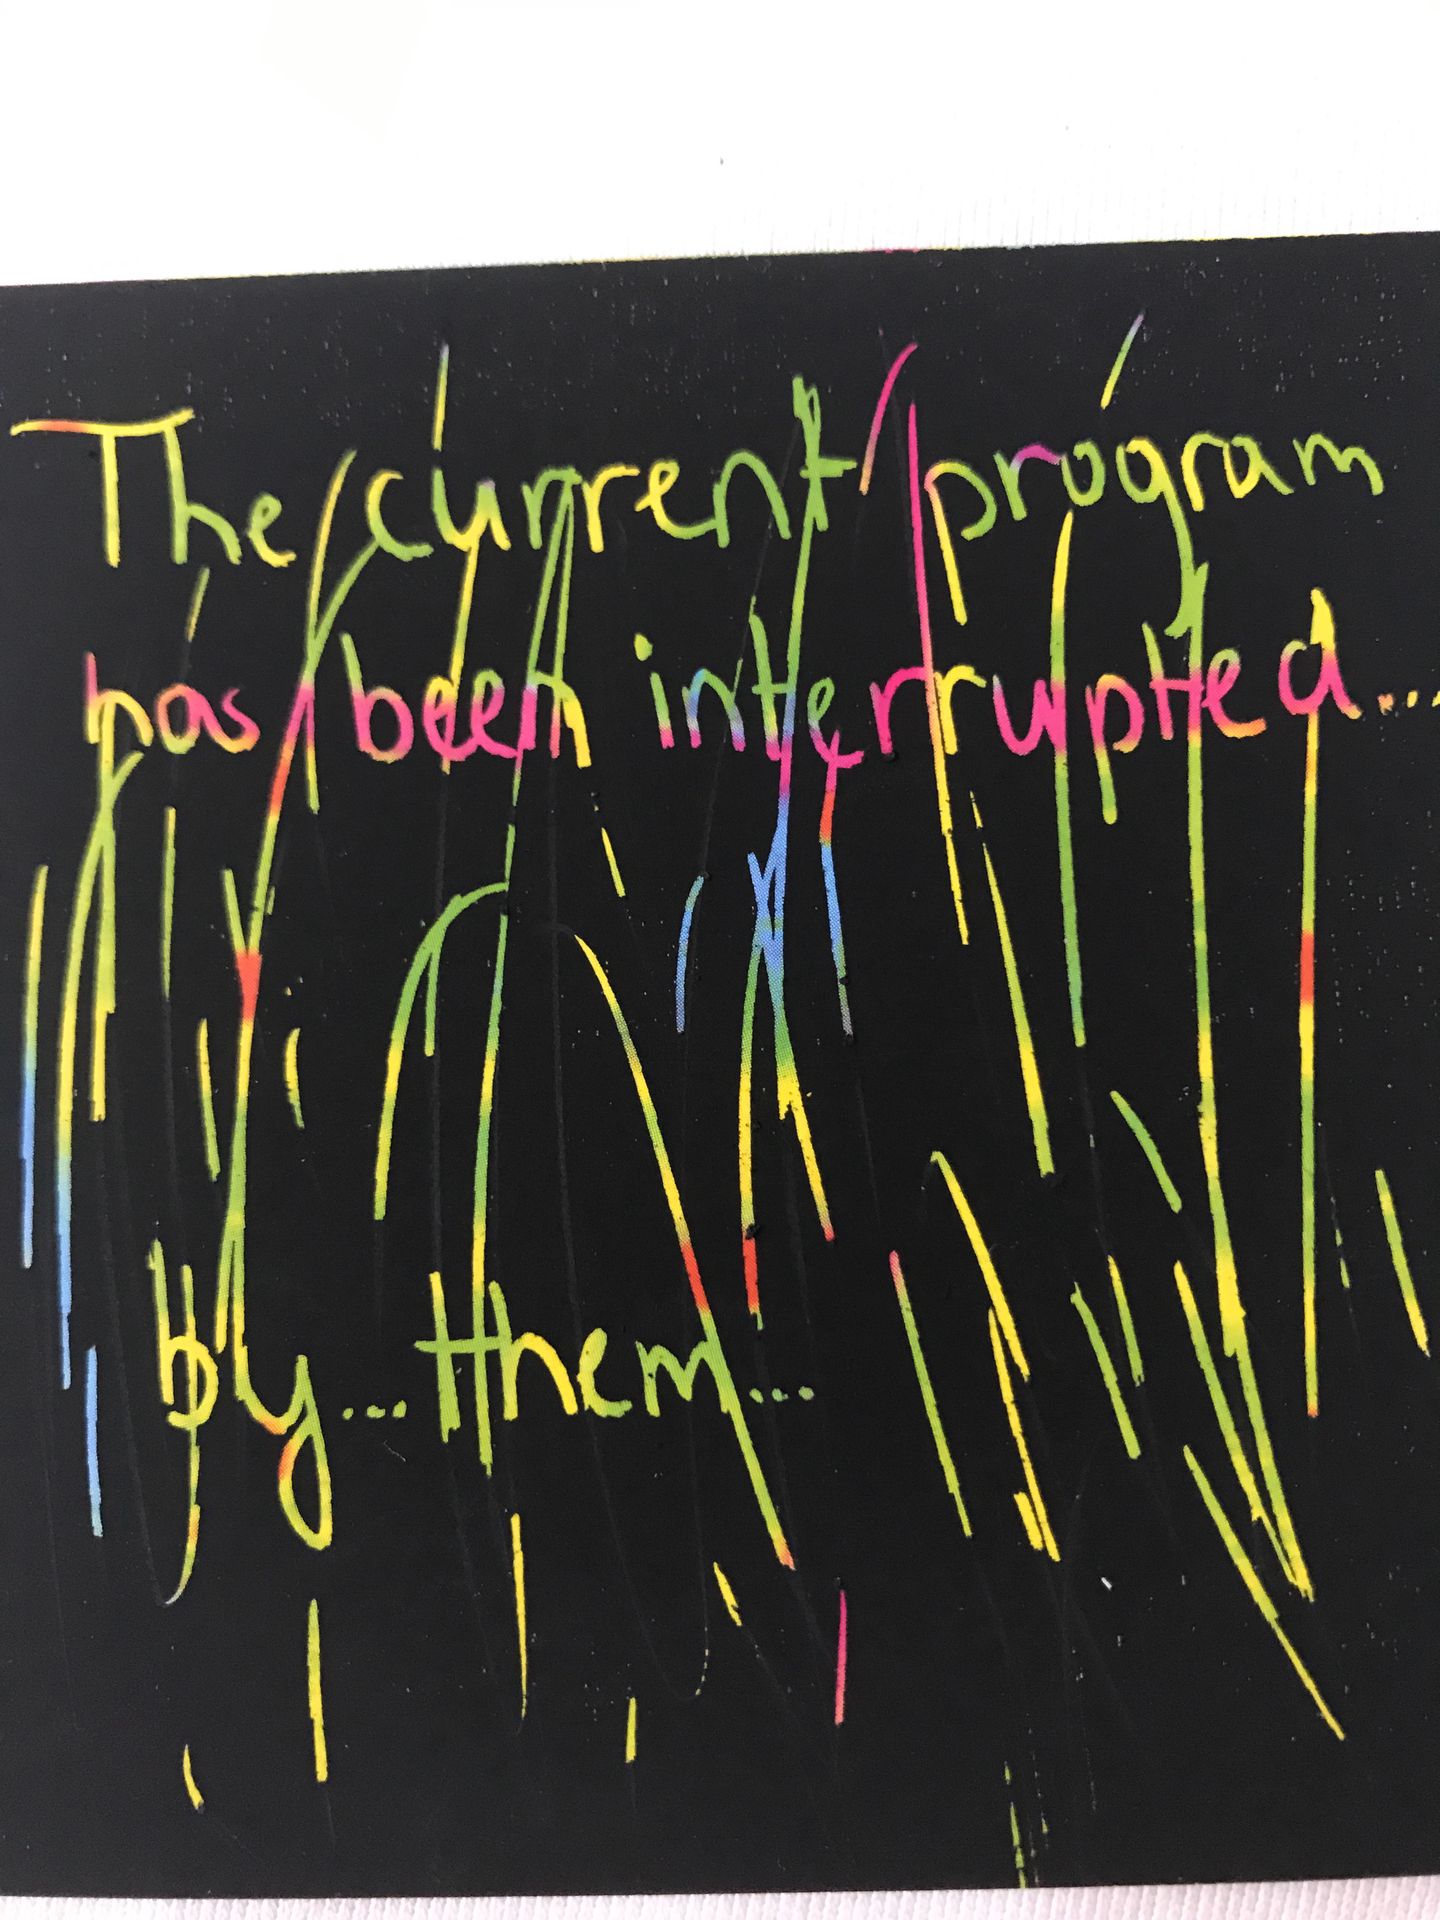 The current program
has been interrupted...
by... them...